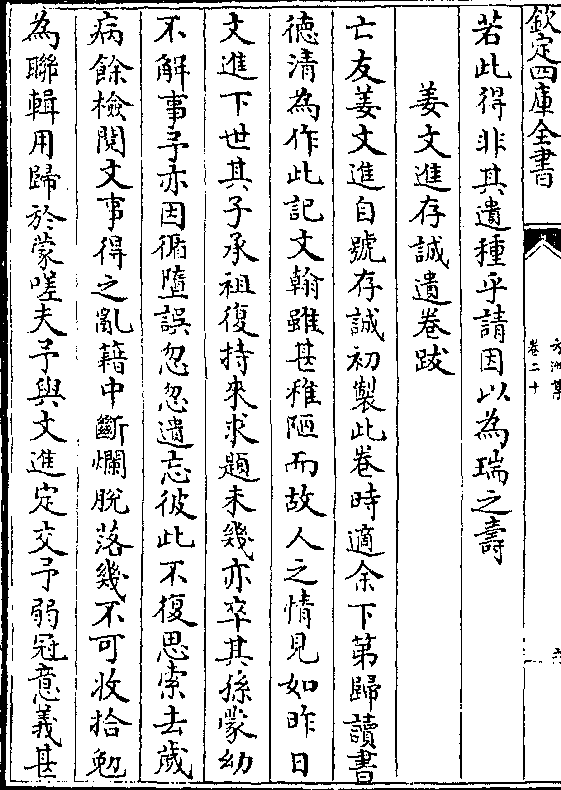 欽定四庫全書
卷二十
若此得非其遺種乎請因以為瑞之壽
姜文進存誠遺卷跋
亡友姜文進自號存誠初製此卷時適余下第歸讀書
德清為作此記文翰雖甚稚陋而故人之情見如昨日
文進下世其子承祖復持來求題未幾亦卒其孫蒙幼
不解事予亦因循墮誤忽忽遺忘彼此不復思索去歲
病餘檢閱文事得之亂籍中斷爛脫落幾不可收拾勉
為聯輯用歸於蒙嗟夫予與文進定交予弱冠意義甚